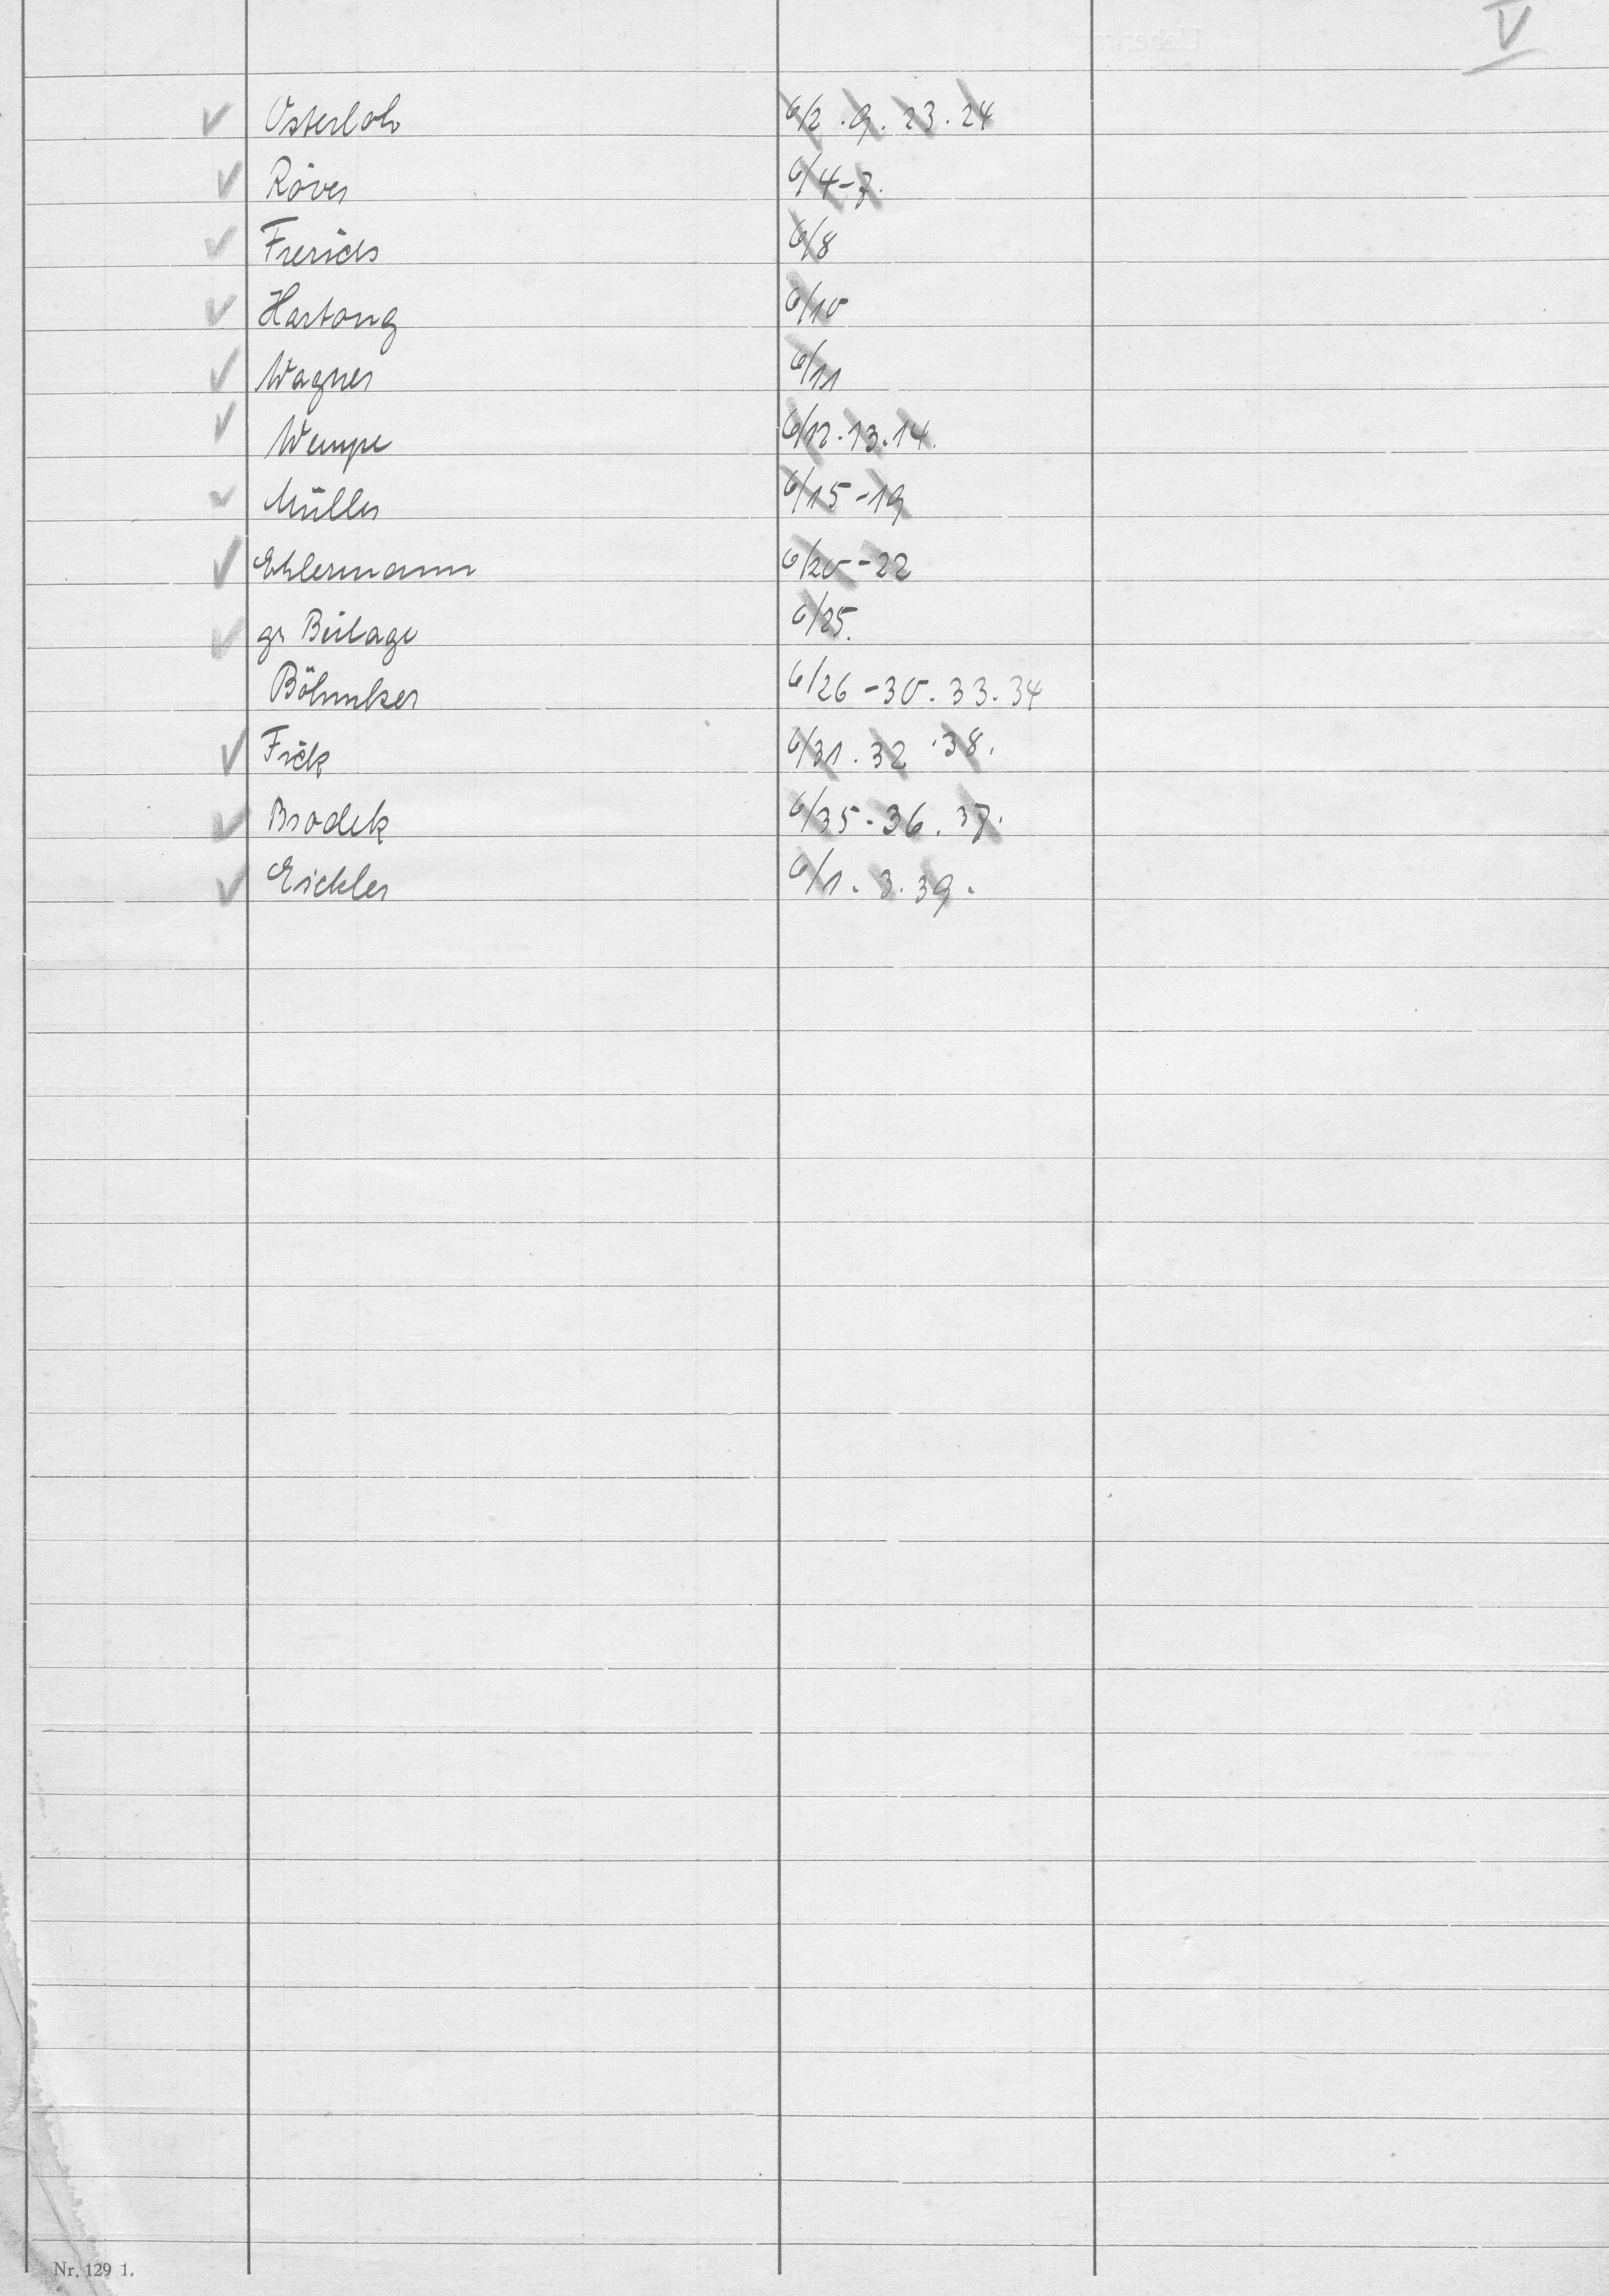 V
✓ Osterloh 6/2 . 9 . 23 . 24
✓ Röver 6/4-7.
✓ Frerichs 6/8
✓ Hartong 6/10
✓ Wagner 6/11
✓ Wempe 6/12.13.14.
✓ Müller 6/15-19
✓ Ehlermann 6/20-22
✓ gr Beilage 6/25.
Böhmker 6/26-30.33.34
✓ Fick 6/31.32.38.
✓ Brodek 6/35.36.37.
✓ Eickler 6/1.3.39.
Nr. 129 1.